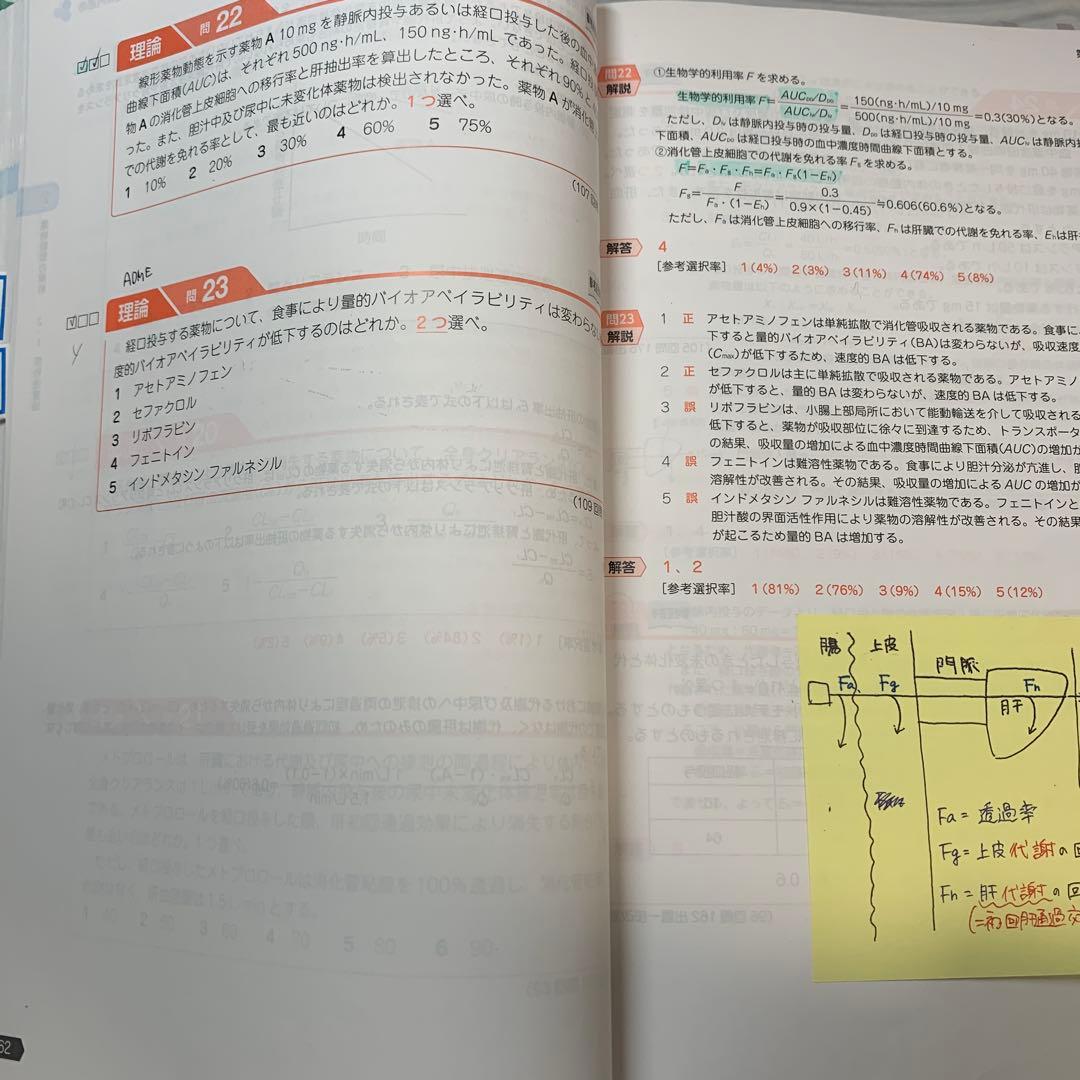 理論 問22
線形薬物動態を示す薬物A 10 mgを静脈内投与あるいは経口投与した後の血中
曲線下面積(AUC)は、それぞれ500 ng・h/mL、150 ng・h/mLであった。経口
物Aの消化管上皮細胞への移行率と肝抽出率を算出したところ、それぞれ90%と
った。また、胆汁中及び尿中に未変化体薬物は検出されなかった。薬物Aが消化管
での代謝を免れる率として、最も近いのはどれか。1つ選べ。
1 10% 2 20% 3 30% 4 60% 5 75%
(107回
ADME
理論 問23
経口投与する薬物について、食事により量的バイオアベイラビリティは変わらない
度的バイオアベイラビリティが低下するのはどれか。2つ選べ。
1 アセトアミノフェン
2 セファクロル
3 リボフラビン
4 フェニトイン
5 インドメタシン ファルネシル
(109回
62
問22 解説
①生物学的利用率Fを求める。
生物学的利用率F=(AUCpo/Dpo)/(AUCiv/Div)=(150(ng・h/mL)/10 mg)/(500(ng・h/mL)/10 mg)=0.3(30%)となる。
ただし、Divは静脈内投与時の投与量、Dpoは経口投与時の投与量、AUCivは静脈内投
下面積、AUCpoは経口投与時の血中濃度時間曲線下面積とする。
②消化管上皮細胞での代謝を免れる率Fgを求める。
F=Fa・Fg・Fh=Fa・Fg(1-Eh)
Fg=F/(Fa・(1-Eh))=0.3/(0.9×(1-0.45))≒0.606(60.6%)となる。
ただし、Faは消化管上皮細胞への移行率、Fhは肝臓での代謝を免れる率、Ehは肝
解答 4
[参考選択率] 1(4%) 2(3%) 3(11%) 4(74%) 5(8%)
問23 解説
1 正 アセトアミノフェンは単純拡散で消化管吸収される薬物である。食事に
下すると量的バイオアベイラビリティ(BA)は変わらないが、吸収速度
(Cmax)が低下するため、速度的BAは低下する。
2 正 セファクロルは主に単純拡散で吸収される薬物である。アセトアミノ
が低下すると、量的BAは変わらないが、速度的BAは低下する。
3 誤 リボフラビンは、小腸上部局所において能動輸送を介して吸収される
低下すると、薬物が吸収部位に徐々に到達するため、トランスポータ
の結果、吸収量の増加による血中濃度時間曲線下面積(AUC)の増加が
4 誤 フェニトインは難溶性薬物である。食事により胆汁分泌が亢進し、胆
溶解性が改善される。その結果、吸収量の増加によるAUCの増加が
5 誤 インドメタシン ファルネシルは難溶性薬物である。フェニトインと
胆汁酸の界面活性作用により薬物の溶解性が改善される。その結果
が起こるため量的BAは増加する。
解答 1、2
[参考選択率] 1(81%) 2(76%) 3(9%) 4(15%) 5(12%)
腸 上皮 門脈
Fa Fg Fh
肝
Fa = 透過率
Fg = 上皮代謝の回
Fh = 肝代謝の回
(=初回肝通過効